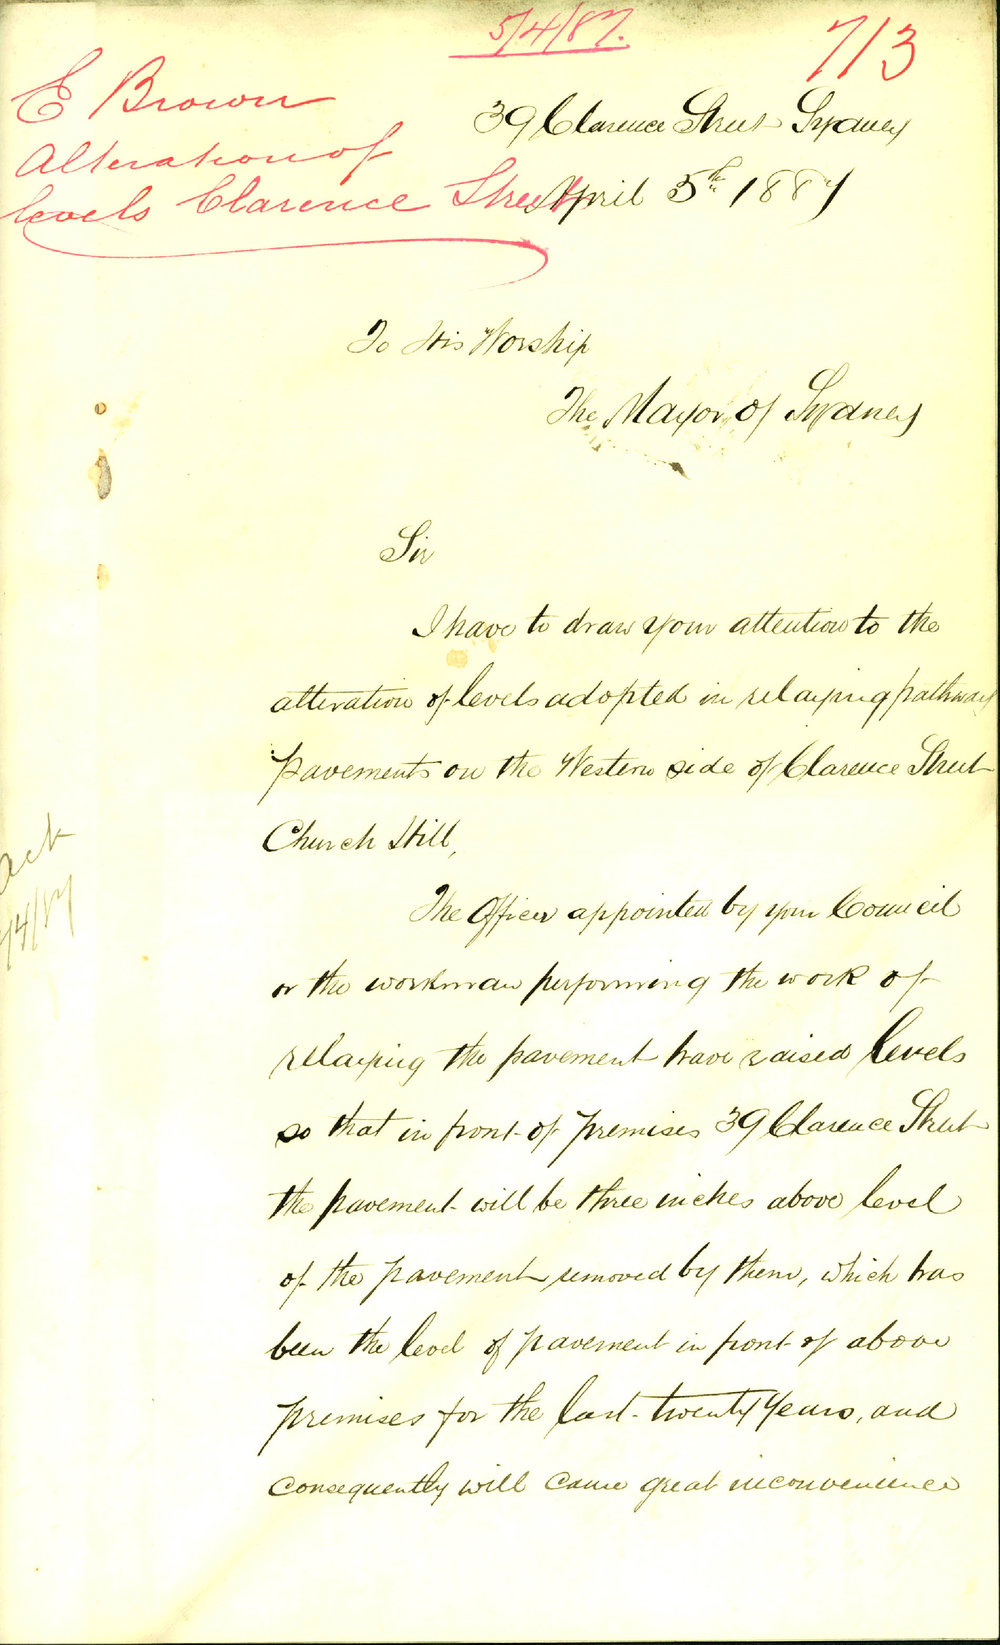 5/4/87.
713
E Brown
Alteration of
levels Clarence Street
39 Clarence Street Sydney
April 5th 1887
To His Worship
The Mayor of Sydney
Sir
I have to draw your attention to the
alteration of levels adopted in relaying pathway
pavements on the Western side of Clarence Street
Church Hill,
The Officer appointed by your Council
or the workman performing the work of
relaying the pavement have raised levels
so that in front of premises 39 Clarence Street
the pavement will be three inches above level
of the pavement removed by them, which has
been the level of pavement in front of above
premises for the last twenty years, and
consequently will cause great inconvenience
Ack
/4/87